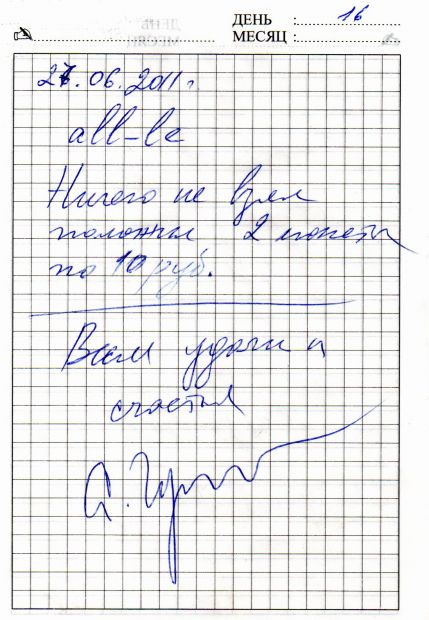 ДЕНЬ : 16
МЕСЯЦ :
27.06.2011 г.
all-le
Ничего не взял
положил 2 монеты
по 10 руб.
Вам удачи и
счастья